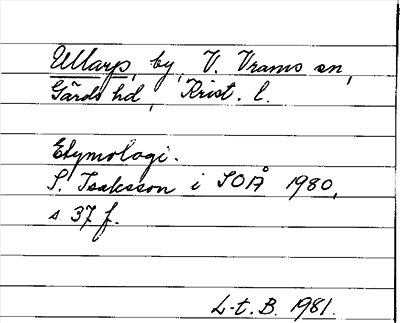 Ullarp, by, V. Vrams sn,
Gärds hd, Krist. l.
Etymologi.
S. Isaksson i SOÅ 1980,
s 37 f.
L-t. B. 1981.